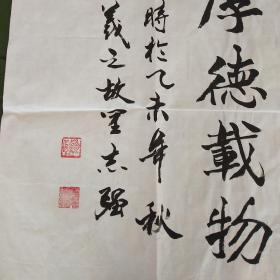 厚德載物
時於乙未年秋
羲之故里志强